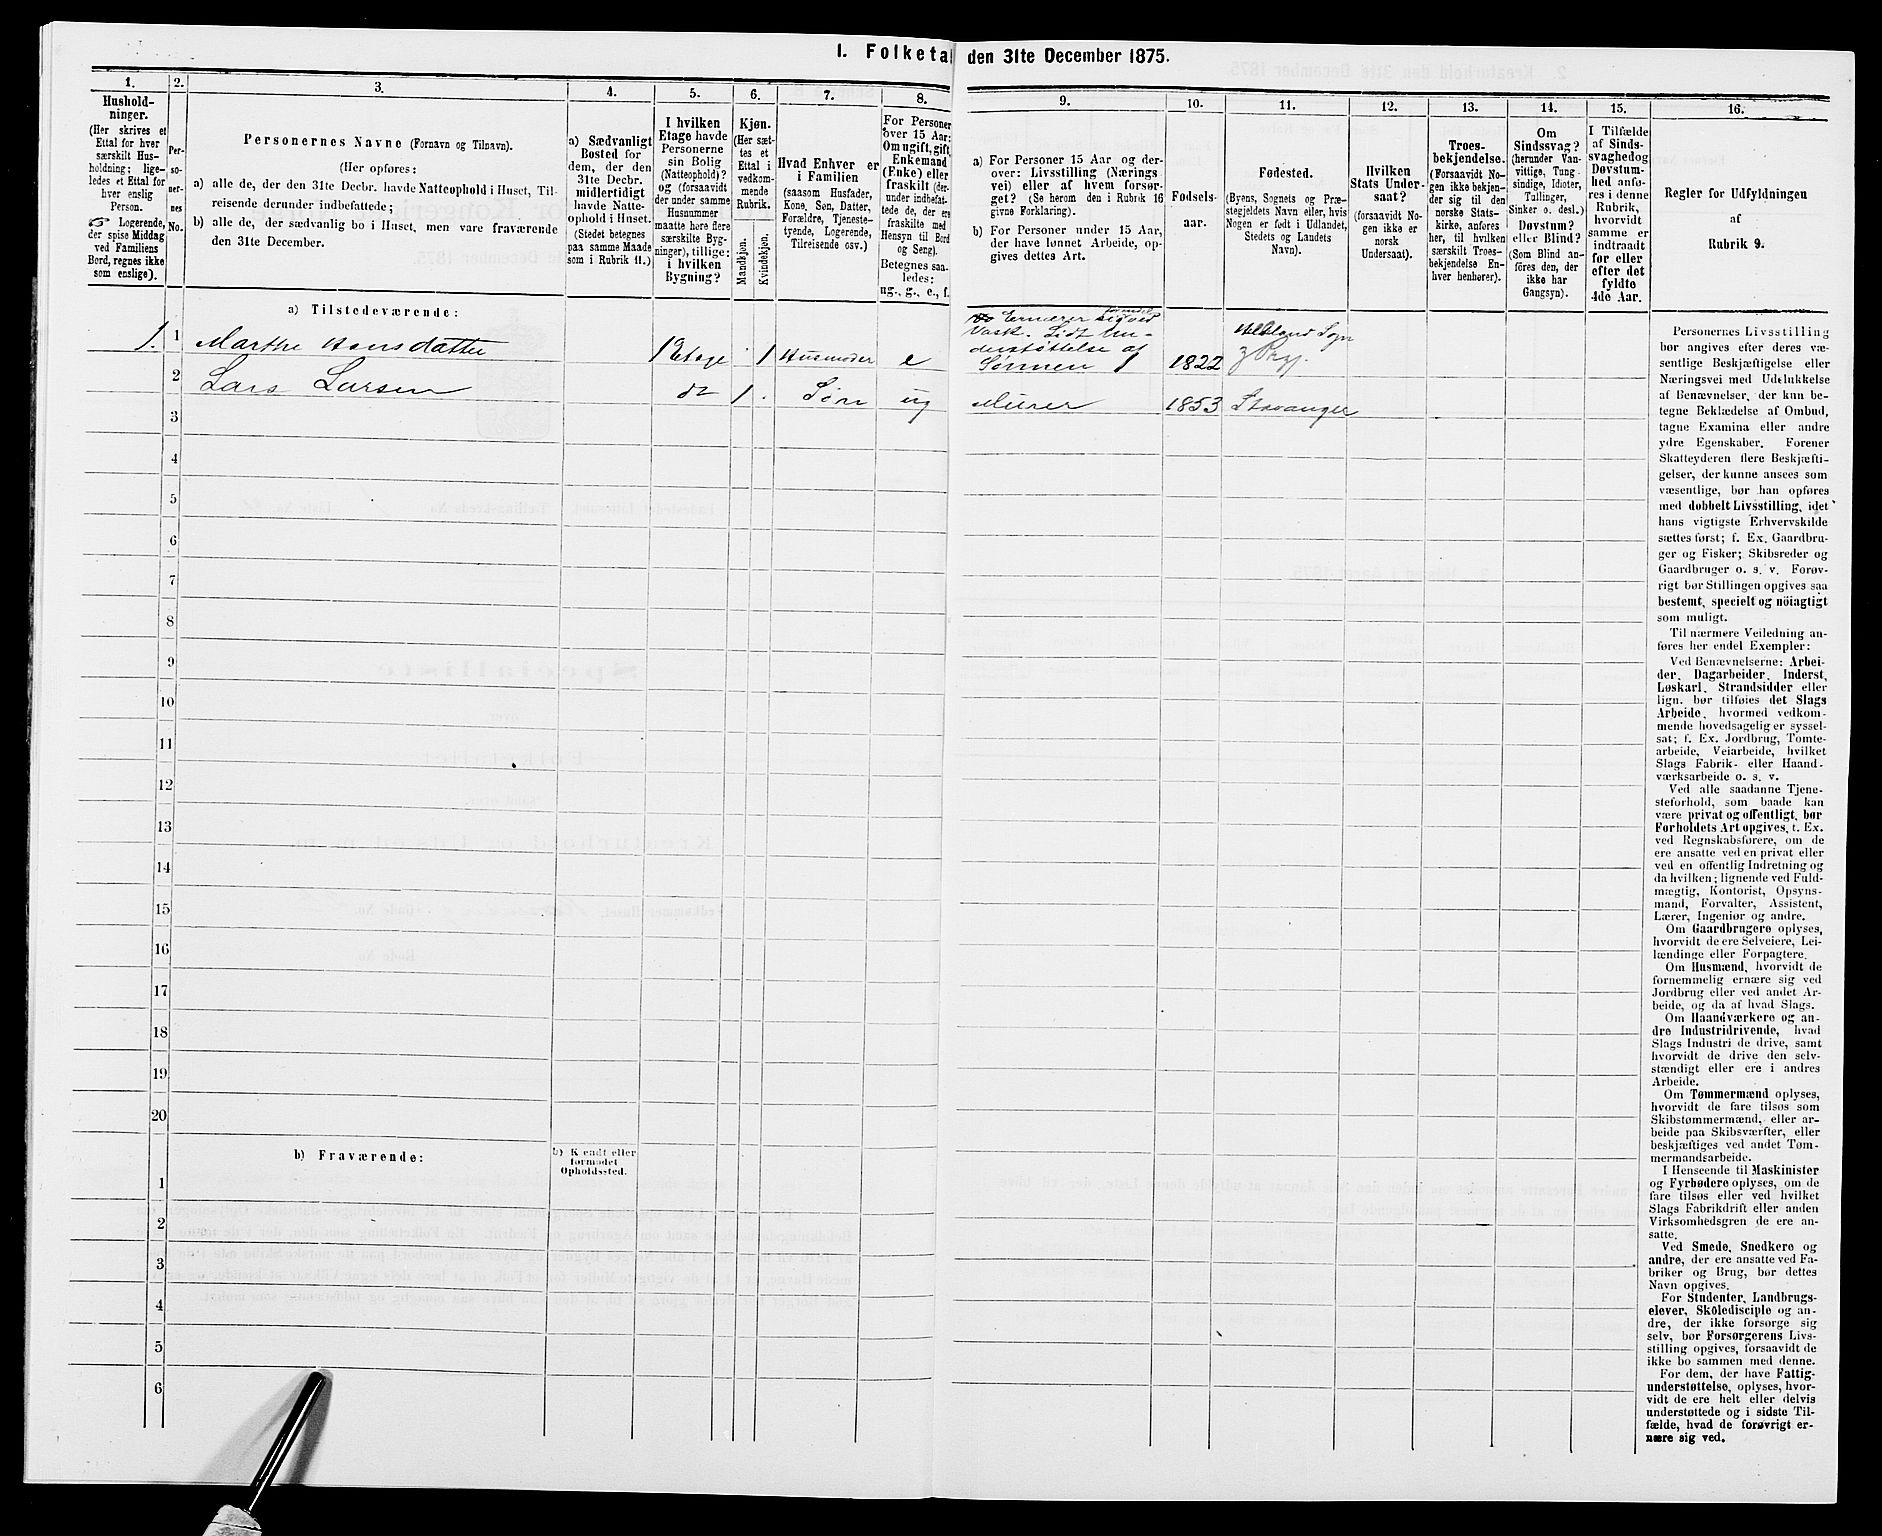 1. Folketa den 31te December 1875.
1.
2.
3.
4.
5.
6.
7.
8.
9.
10.
11.
12.
13.
14.
15.
16.
Hushold-
ninger.
(Her skrives et
Ettal for hver
særskilt Hus-
holdning; lige-
ledes et Ettal for
hver enslig
Person.
☞ Logerende,
der spise Middag
ved Familiens
Bord, regnes ikke
som enslige).
Per-
so-
ner-
nes
No.
Personernes Navne (Fornavn og Tilnavn).
(Her opføres:
a) alle de, der den 31te Decbr. havde Natteophold i Huset, Til-
reisende derunder indbefattede;
b) alle de, der sædvanlig bo i Huset, men vare fraværende
den 31te December.
a) Sædvanligt
Bosted for
dem, der den
31te Decbr.
midlertidigt
havde Natte-
ophold i Huset.
(Stedet betegnes
paa samme Maade
som i Rubrik 11.)
I hvilken
Etage havde
Personerne
sin Bolig
(Natteophold)?
og (forsaavidt
der under samme
Husnummer
maatte høre flere
særskilte Byg-
ninger), tillige:
i hvilken
Bygning?
Kjøn.
(Her sæt-
tes et
Ettal i
vedkom-
mende
Rubrik.
Mandkjøn.
Kvindekjøn.
Hvad Enhver er
i Familien
(saasom Husfader,
Kone, Søn, Datter,
Forældre, Tjeneste-
tyende, Logerende,
Tilreisende osv.)
For Personer
over 15 Aar:
Om ugift, gift,
Enkemand
(Enke) eller
fraskilt (der-
under indbefat-
tede de, der ere
fraskilte med
Hensyn til Bord
og Seng).
Betegnes saa-
ledes:
ug., g., e., f.
a) For Personer 15 Aar og der-
over: Livsstilling (Nærings
vei) eller af hvem forsør-
get? (Se herom den i Rubrik 16
givne Forklaring).
b) For Personer under 15 Aar,
der have lønnet Arbeide, op-
gives dettes Art.
Fødsels-
aar.
Fødested.
(Byens, Sognets og Præ-
stegjeldets Navn eller, hvis
Nogen er født i Udlandet,
Stedets og Landets
Navn).
Hvilken
Stats Under-
saat?
(forsaavidt No-
gen ikke er
norsk
Undersaat).
Troes-
bekjendelse.
(Forsaavidt No-
gen ikke bekjen-
der sig til den
norske Stats-
kirke, anføres
her, til hvilken
særskilt Troes-
bekjendelse En-
hver henhører).
Om
Sindssvag?
(herunder Van-
vittige, Tung-
sindige, Idioter,
Tullinger,
Sinker o. desl.)
Døvstum?
eller Blind?
(Som Blind an-
føres den, der
ikke har
Gangsyn).
I Tilfælde
af Sinds-
svaghed og
Døvstum-
hed anfø-
res i denne
Rubrik,
hvorvidt
samme er
indtraadt
før eller
efter det
fyldte
4de Aar.
Regler for Udfyldningen
af
Rubrik 9.
a) Tilstedeværende:
1. 1 Marthe Hansdatter 1 Etage 1 Husmoder e
Ernærer sig ved
Vask. Lidt Un-
derstøttelse af
Sønnen 1822 Sogn
2 Lars Larsen do 1 Søn ug Murer 1853 Stavanger
3
4
5
6
7
8
9
10
11
12
13
14
15
16
17
18
19
20
b) Fraværende:
b) Kjendt eller
formodet
Opholdssted.
1
2
3
4
5
6
Personernes Livsstilling
bør angives efter deres væ-
sentlige Beskjæftigelse eller
Næringsvei med Udelukkelse
af Benævnelser, der kun be-
tegne Beklædelse af Ombud,
tagne Examina eller andre
ydre Egenskaber. Forener
Skatteyderen flere Beskjæfti-
gelser, der kunne ansees som
væsentlige, bør han opføres
med dobbelt Livsstilling, idet
hans vigtigste Erhvervskilde
sættes først; f. Ex. Gaardbru-
ger og Fisker; Skibsreder og
Gaardbruger o. s. v. Forøv-
rigt bør Stillingen opgives saa
bestemt, specielt og nöiagtigt
som muligt.
Til nærmere Veiledning an-
føres her endel Exempler:
Ved Benævnelserne: Arbei-
der, Dagarbeider, Inderst,
Løskarl, Strandsidder eller
lign. bør tilføies det Slags
Arbeide, hvormed vedkom-
mende hovedsagelig er syssel-
sat; f. Ex. Jordbrug, Tomte-
arbeide, Veiarbeide, hvilket
Slags Fabrik- eller Haand-
værksarbeide o. s. v.
Ved alle saadanne Tjene-
steforhold, som baade kan
være privat og offentligt, bør
Forholdets Art opgives, t. Ex.
ved Regnskabsførere, om de
ere ansatte ved en privat eller
ved en offentlig Indretning og
da hvilken; lignende ved Fuld-
mægtig, Kontorist, Opsyns-
mand, Forvalter, Assistent,
Lærer, Ingeniør og andre.
Om Gaardbrugere oplyses,
hvorvidt de ere Selveiere, Lei-
lændinge eller Forpagtere.
Om Husmænd, hvorvidt de
fornemmelig ernære sig ved
Jordbrug eller ved andet Ar-
beide, og da af hvad Slags.
Om Haandværkere og an-
dre Industridrivende, hvad
Slags Industri de drive, samt
hvorvidt de drive den selv-
stændigt eller ere i andres
Arbeide.
Om Tømmermænd oplyses,
hvorvidt de fare tilsøs som
Skibstømmermænd, eller ar-
beide paa Skibsværfter, eller
beskjæftiges ved andet Tøm-
mermandsarbeide.
I Henseende til Maskinister
og Fyrbødere oplyses, om de
fare tilsøs eller ved hvilket
Slags Fabrikdrift eller anden
Virksomhedsgren de ere an-
satte.
Ved Smede, Snedkere og
andre, der ere ansatte ved Fa-
briker og Brug, bør dettes
Navn opgives.
For Studenter, Landbrugs-
elever, Skoledisciple og an-
dre, der ikke forsorge sig
selv, bør Forsørgerens Livs-
stilling opgives, forsaavidt de
ikke bo sammen med denne.
For dem, der have Fattig-
understøttelse, oplyses, hvor-
vidt de ere helt eller delvis
understøttede og i sidste Til-
fælde, hvad de forøvrigt er-
nære sig ved.